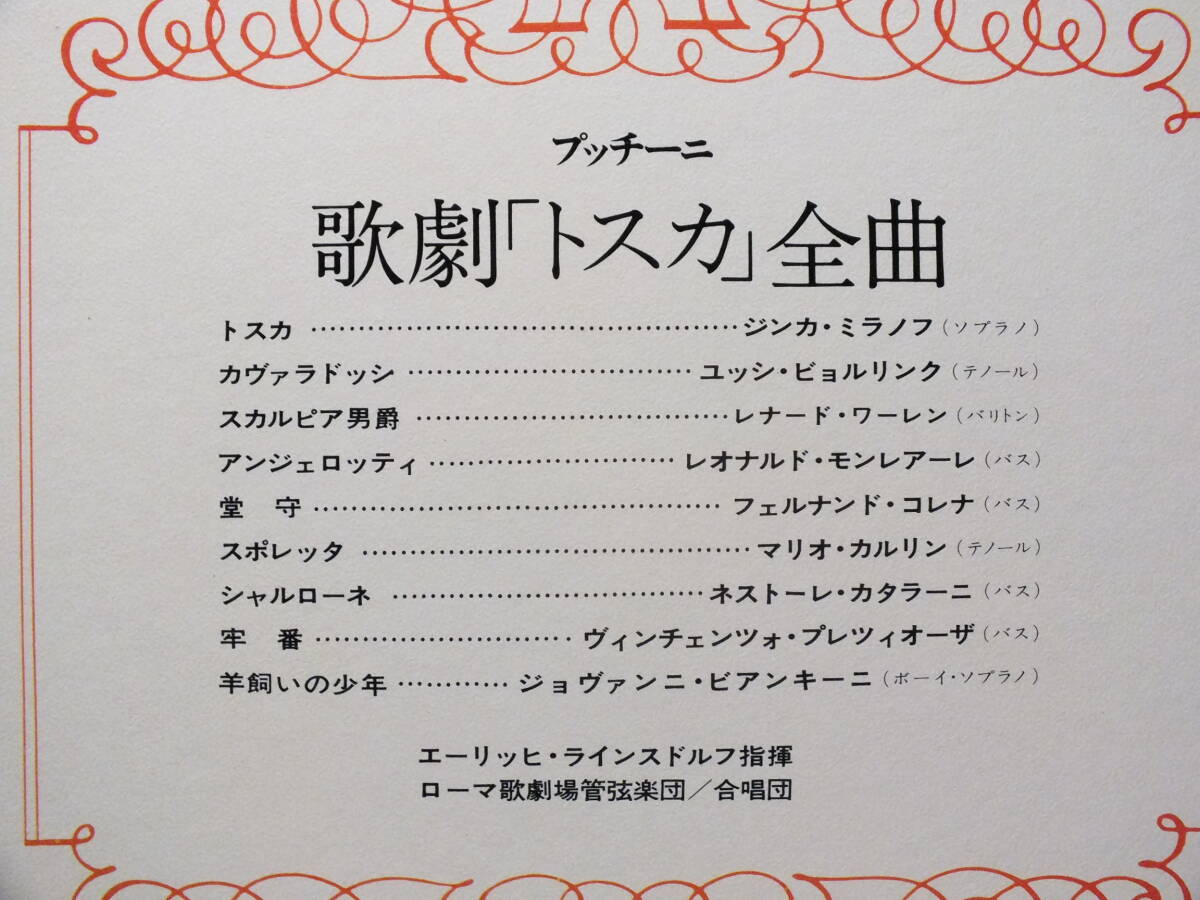 プッチーニ
歌劇「トスカ」全曲
トスカ ‥‥‥‥‥‥‥‥‥‥‥‥‥‥‥‥‥‥ ジンカ・ミラノフ（ソプラノ）
カヴァラドッシ ‥‥‥‥‥‥‥‥‥‥‥‥ ユッシ・ビョルリンク（テノール）
スカルピア男爵 ‥‥‥‥‥‥‥‥‥‥‥‥‥ レナード・ワーレン（バリトン）
アンジェロッティ ‥‥‥‥‥‥‥‥‥‥ レオナルド・モンレアーレ（バス）
堂　守 ‥‥‥‥‥‥‥‥‥‥‥‥‥‥‥‥‥ フェルナンド・コレナ（バス）
スポレッタ ‥‥‥‥‥‥‥‥‥‥‥‥‥‥‥‥ マリオ・カルリン（テノール）
シャルローネ ‥‥‥‥‥‥‥‥‥‥‥‥‥ ネストーレ・カタラーニ（バス）
牢　番 ‥‥‥‥‥‥‥‥‥‥‥ ヴィンチェンツォ・プレツィオーザ（バス）
羊飼いの少年 ‥‥‥‥ ジョヴァンニ・ビアンキーニ（ボーイ・ソプラノ）
エーリッヒ・ラインスドルフ指揮
ローマ歌劇場管弦楽団／合唱団